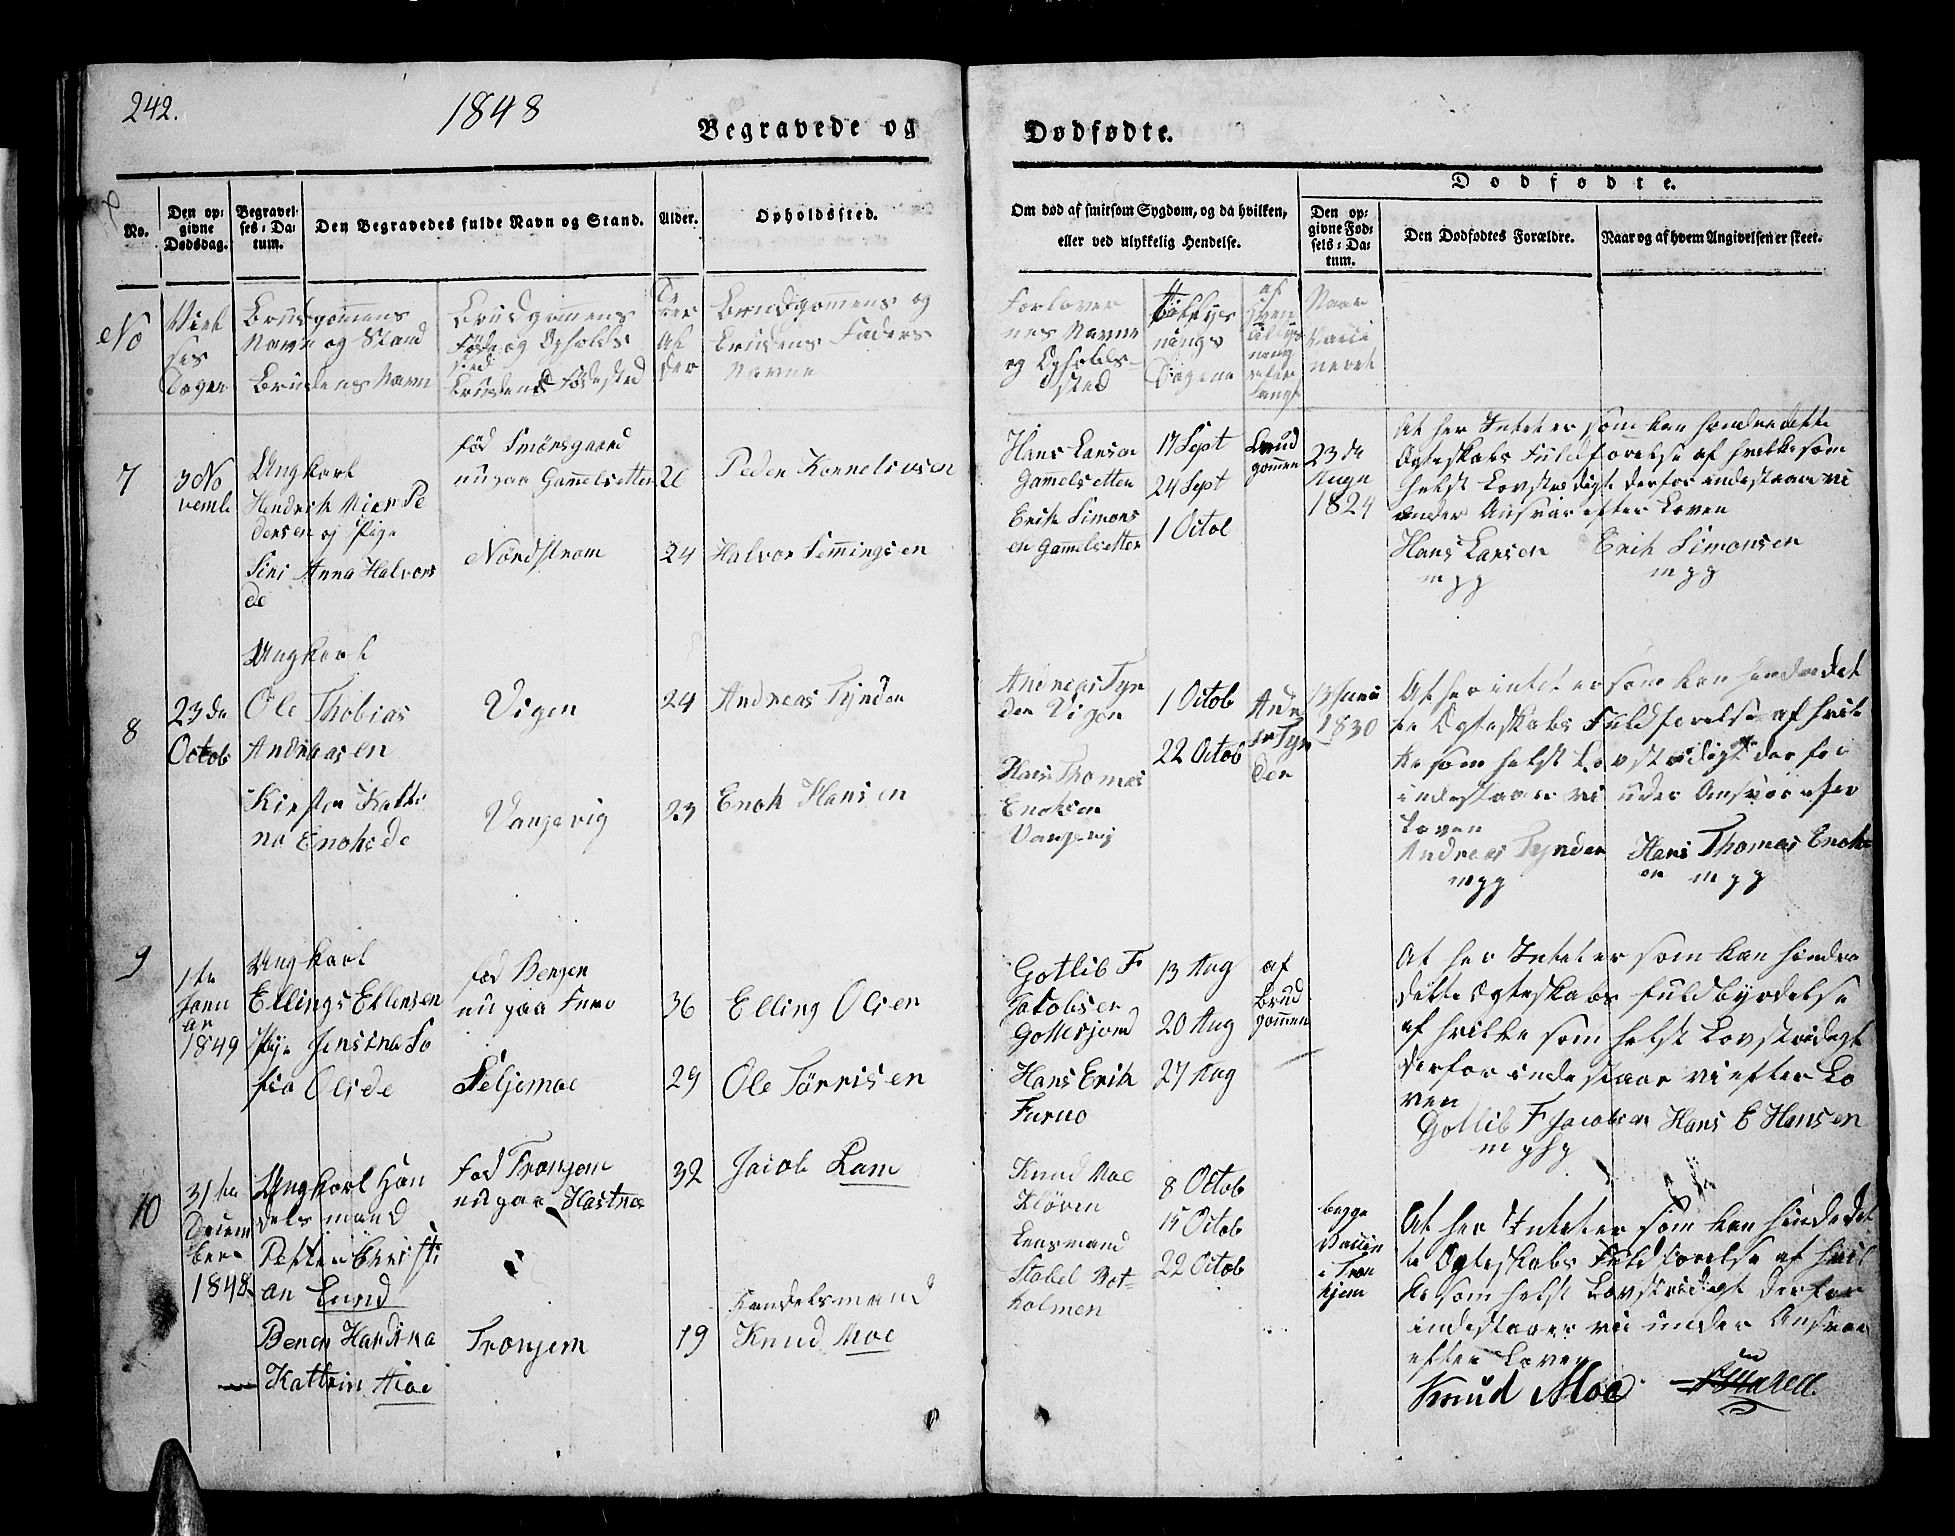 242.
1848
Begravede og
Dødfødte.
No.
Den op-
givne
Dødsdag.
Begravel-
ses-Da-
tum.
Den Begravedes fulde Navn og Stand.
Alder.
Opholdssted.
Om død af smitsom Sygdom, og da hvilken,
eller ved ulykkelig Hendelse.
Dødfødte.
Den op-
givne Fød-
sels-Da-
tum.
Den Dødfødtes Forældre.
Naar og af hvem Angivelsen er skeet.
No
Viel
ses
Dagen
Brudgommens
Navn og Stand
Brudens Navn
Brudgommens
Føde og Opholds
sted
Brudens Fødested
Al
der
Brudgomens og
Brudens Faders
Navne
Forlover
nes Navne
og Opholds-
sted
nings
Dagene
af
Naar
Vacci
neret
7
3 No
vemb
Ungkarl
Hendrik Mier Pe
dersen og Pige
Sini Anna Halvors
de
fød Smørsgaard
nu paa Gammelsetter
Nordstrøm
26
24
Peder Kornelivsen
Halvor Semmingsen
Hans Larsen
Gammelsetter
Erik Simons
en Gammelsetter
17 Sept
24 Sept
1 Octob
Brud
gommen
23 de
Augu
1824
At her Intet er som kan hindre dette
Ægteskabs Fuldførelse af hvilke som
helst Lovstridigt derfor indestaaer vi
under Ansvar efter Loven
Hans Larsen Erik Simonsen
m p g m p g
8
23 de
Octob
Ungkarl
Ole Thobias
Andreasen
Kirsten Kathri
na Enoksde
Vigen
Vangsvig
24
23
Andreas Tynden
Enok Hansen
Andreas Tyn
den Vigen
Hans Thomas
Enoksen
Vangsvig
1 Octob
22 Octob
Andr
as Tyn
den
13 Juni
1830
At her intet er som kan hindre det
te Ægteskabs Fuldførelse af hvil
ke som helst Lovstridigt derfor
indestaaer vi under Ansvar efter
Loven
Andreas Tynden Hans Thomas Enoks
en
m p g m p g
9
1ste
Janu
ar
1849
Ungkarl
Ellings Ellensen
Pige Jensina So
fia Olsde
fød Bergen
nu paa Furo
Seljemoe
36
29
Elling Olsen
Ole Tørrisen
Gotlib F
Jacobsen
Gottesjord
Hans Erik
Furuo
13 Aug
20 Aug
27 Aug
af
Brud
gommen
At her Intet er som kan hindre
dette Ægteskabs fuldbyrdelse
af hvilke som helst Lovstridigt
derfor indestaar vi efter Lo
ven
Gotlib F Jacobsen Hans E Hansen
10
31te
Decem
ber
1848
Ungkarl Han
delsmand
Petter Christi
an Lund
Beret Hardina
Kathrin Moe
fød Tronjem
nu paa Hastnes
Tronjem
32
19
Jacob Lam
Handelsmand
Knud Moe
Knud Moe
Kløven
Lensmand
Stabel Bot-
holmen
8 Octob
15 Octob
22 Octob
begge
Vaccin
i Tron
hjem
At her Intet er som kan hindre det
te Ægteskabs Fuldførelse af hvil
ke som helst Lovstridigt derfor
indestaaer vi under Ansvar
efter Loven
Knud Moe